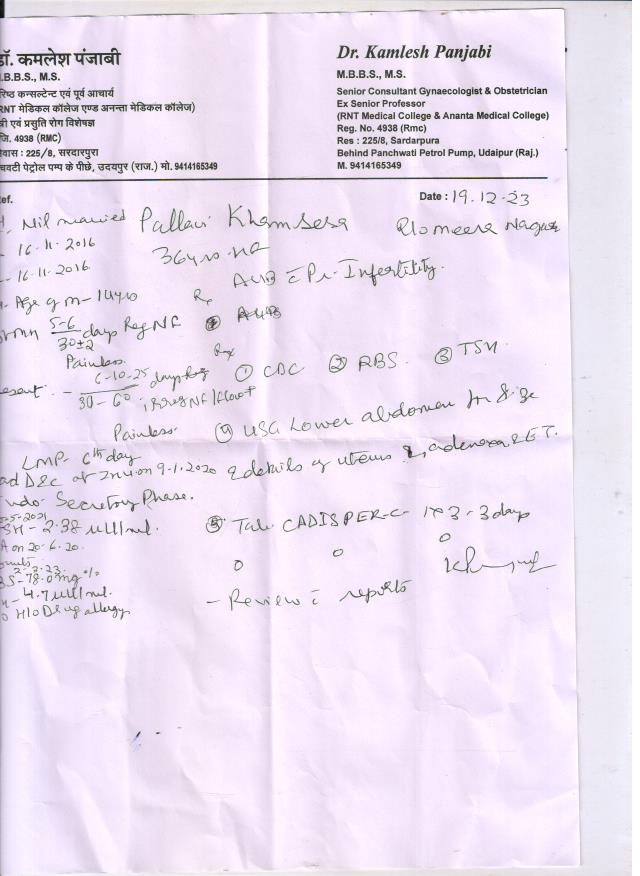 डॉ. कमलेश पंजाबी
.B.B.S., M.S.
रिष्ठ कन्सल्टेन्ट एवं पूर्व आचार्य
RNT मेडिकल कॉलेज एण्ड अनन्ता मेडिकल कॉलेज)
त्री एवं प्रसुति रोग विशेषज्ञ
जि. 4938 (RMC)
वास : 225/8, सरदारपुरा
चवटी पेट्रोल पम्प के पीछे, उदयपुर (राज.) मो. 9414165349
Dr. Kamlesh Panjabi
M.B.B.S., M.S.
Senior Consultant Gynaecologist & Obstetrician
Ex Senior Professor
(RNT Medical College & Ananta Medical College)
Reg. No. 4938 (Rmc)
Res : 225/8, Sardarpura
Behind Panchwati Petrol Pump, Udaipur (Raj.)
M. 9414165349
ef.
Date : 19.12.23
married Pallavi R/o meera Nagar
16.11.2016
36yrs
- 16.11.2016.
AUB c Pr. Infertility.
Age of m - 14yrs Rx
5-6/30±2 days Reg NF AUB
Painless.
6-10-25/30-60 days
① CBC ② RBS. ③ TSH.
Painless. ④ USG Lower abdomen for size
LMP- 6th day & details of uterus & adenexa & ET.
D&C at on 9.1.2020
Endo- Secretory Phase.
5-2021
SH- 2.38 uIU/ml. ⑤ Tab. CADISPER-C- 1x3-3days
on 20.6.20.
2.2.23.
BS-78.0mg%
4.7uIU/ml. - Review c reports
H/O Drug allergy